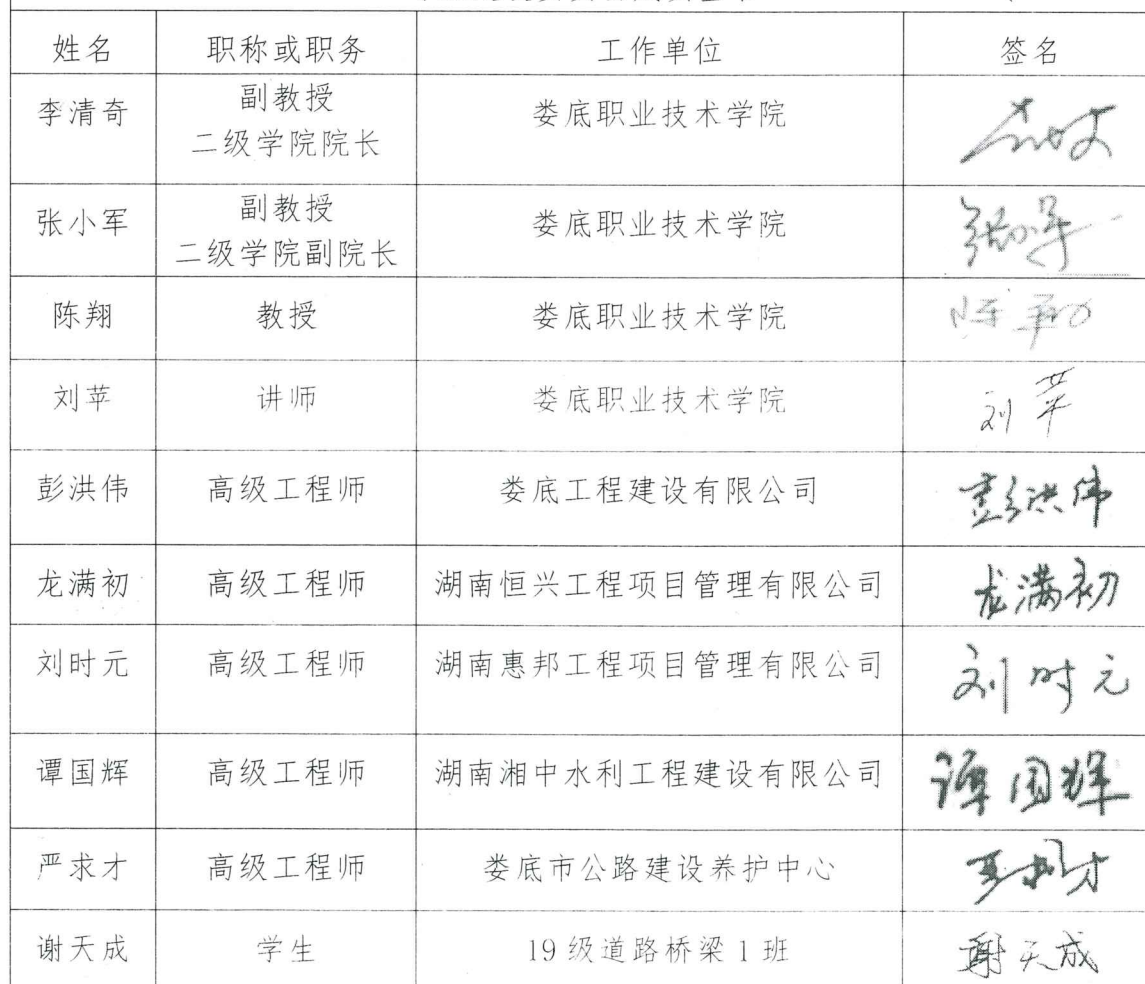 姓名 职称或职务 工作单位 签名
李清奇 副教授 娄底职业技术学院
二级学院院长
张小军 副教授 娄底职业技术学院 张小军
二级学院副院长
陈翔 教授 娄底职业技术学院 陈翔
刘苹 讲师 娄底职业技术学院 刘苹
彭洪伟 高级工程师 娄底工程建设有限公司 彭洪伟
龙满初 高级工程师 湖南恒兴工程项目管理有限公司 龙满初
刘时元 高级工程师 湖南惠邦工程项目管理有限公司 刘时元
谭国辉 高级工程师 湖南湘中水利工程建设有限公司 谭国辉
严求才 高级工程师 娄底市公路建设养护中心 严求才
谢天成 学生 19级道路桥梁1班 谢天成